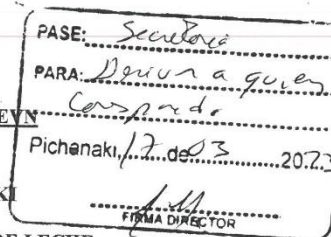 PASE: Secretaria
PARA: Derivar a quien
Corsponda
EVN
Pichanaki, 17 de 03 2023
KI
FIRMA DIRECTOR